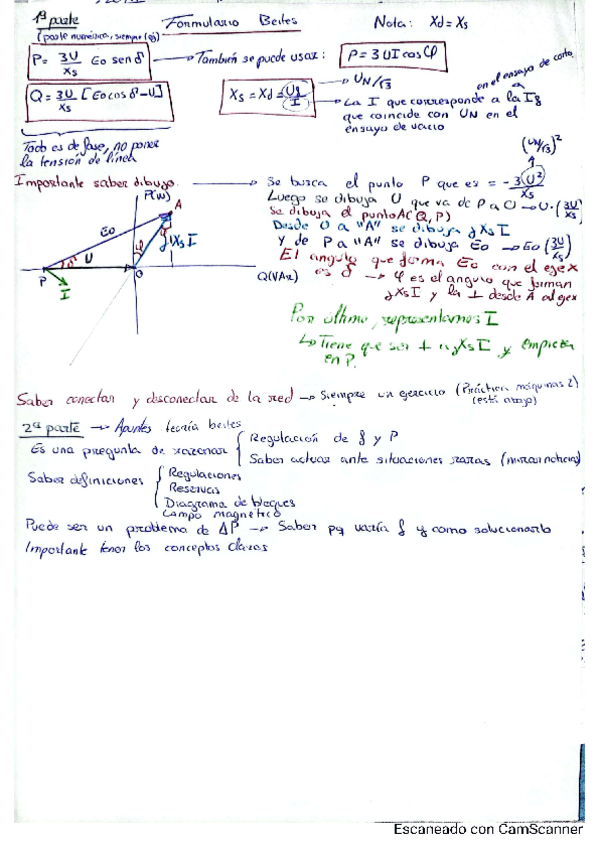 1ª parte
Formulario Beites
Nota: Xd = Xs
(parte numérica, siempre
P = 3U/Xs Eo sen δ
→ También se puede usar:
P = 3UI cos φ
Q = 3U/Xs [Eo cos δ - U]
Xs = Xd =
→ UN/√3
en el ensayo de corto
→ La I que corresponde a la
que coincide con UN en el
ensayo de vacío
Todo es de fase, no poner
la tensión de línea
(UN/√3)²
Importante saber dibujo.
→ Se busca el punto P que es = - 3U²/Xs
Luego se dibuja U que va de P a O → U · (3U/Xs)
Se dibuja el punto A (Q, P)
Desde O a "A" se dibuja jXs I
Y de P a "A" se dibuja Eo → Eo (3U/Xs)
El angulo que forma Eo con el eje x
es δ → φ es el angulo que forman
jXs I y la ⊥ desde A al eje x
P(W)
A
Eo
φ
jXs I
δ
U
P
O
Q(VAr)
I
Por último, representamos I
↳ Tiene que ser ⊥ a jXs I y empieza
en P.
Saber conectar y desconectar de la red → Siempre un ejercicio (Práctica máquinas 2)
(está abajo)
2ª parte → Apuntes teoría beites
Es una pregunta de razonar
Regulación de f y P
Saber actuar ante situaciones raras (mirar noticias)
Saber definiciones
Regulaciones
Reservas
Diagrama de bloques
Campo magnético
Puede ser un problema de ΔP → Saber pq varía f y como solucionarlo
Importante tener los conceptos claros
Escaneado con CamScanner